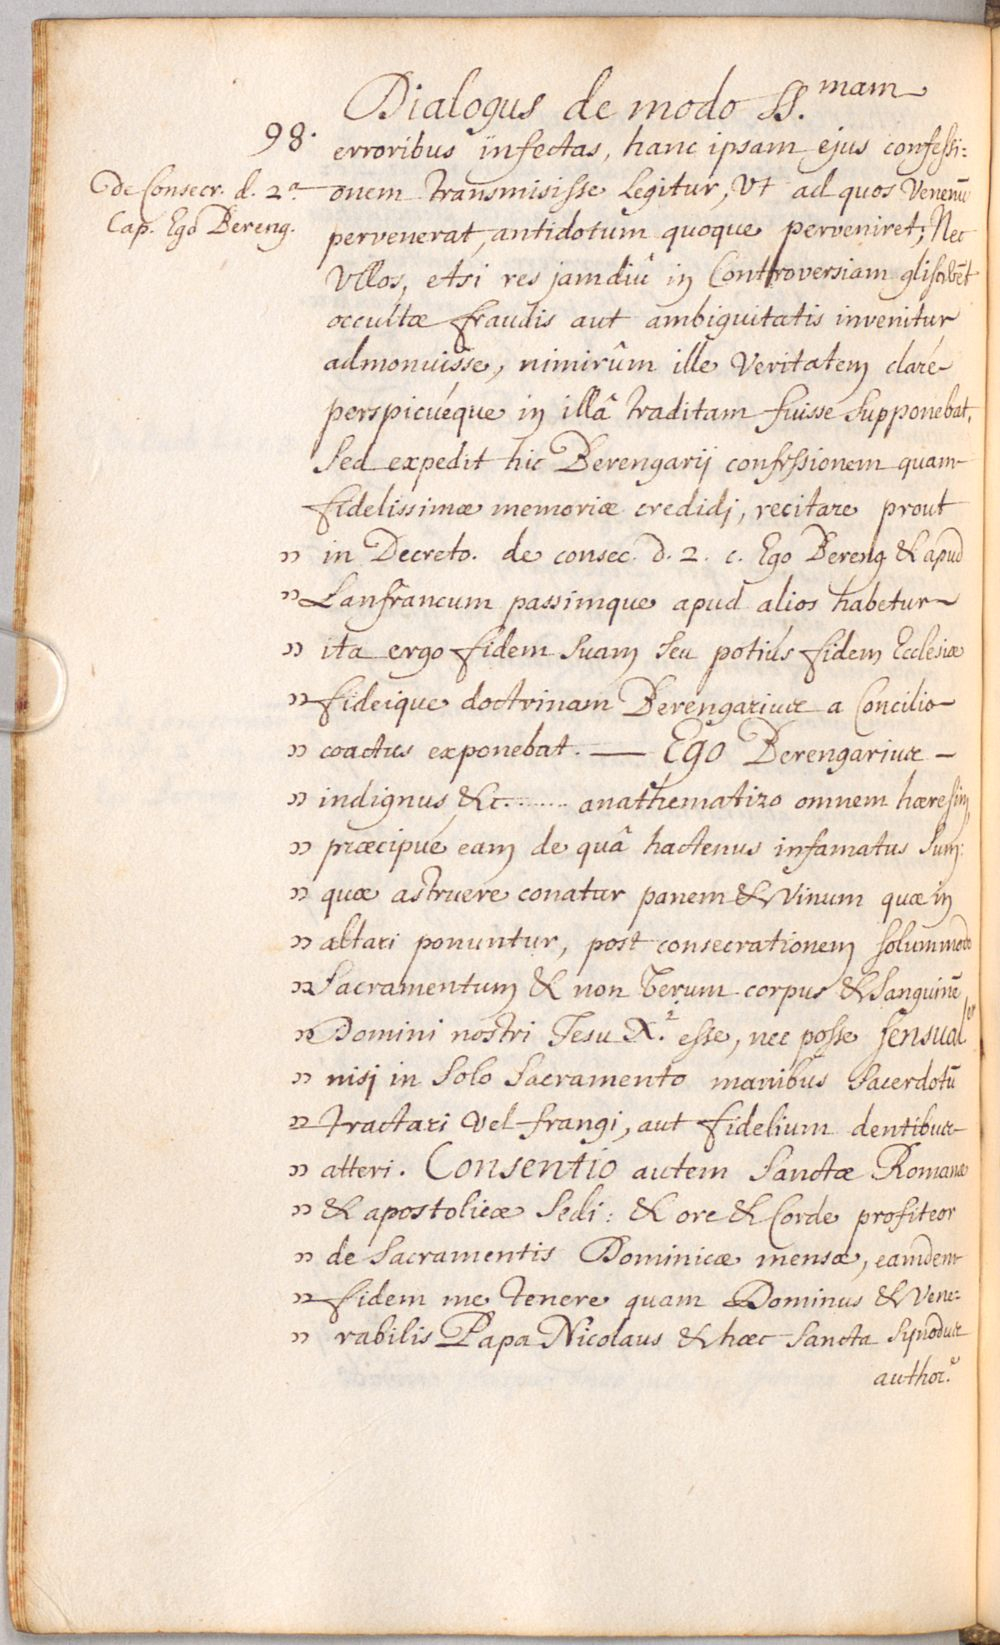 Dialogus de modo SS.mam
98.
erroribus infectas, hanc ipsam ejus confessi:
de Consecr. d. 2.a
Cap. Ego Bereng.
onem transmisisse legitur, Ut ad quos Venenū
pervenerat, antidotum quoque perveniret; Nec
Ullos, etsi res jamdiû in Controversiam
occultæ fraudis aut ambiguitatis invenitur
admonuisse, nimirûm ille Veritatem claré
perspicuéque in illâ traditam fuisse supponebat.
Sed expedit hic Berengarij confessionem quam
fidelissimæ memoriæ credidj, recitare prout
" in Decreto. de consec. d. 2. c. Ego Bereng & apud
" Lanfrancum passimque apud alios habetur
" ita ergo fidem suam seu potiús fidem Ecclesiæ
" fideique doctrinam Berengarius a Concilio
" coactus exponebat. — Ego Berengarius –
" indignus, &c. ...... anathematizo omnem hæresim,
" præcipué eam de quâ hactenus infamatus sum:
" quæ astruere conatur panem & Vinum quæ in
" altari ponuntur, post consecrationem solummodo
" Sacramentum & non Verum corpus & Sanguinē
" Domini nostri Jesu X.i esse, nec posse sensualer
" nisj in solo Sacramento manibus Sacerdotū
" tractari Vel frangi, aut fidelium dentibus
" atteri. Consentio autem Sanctæ Romanæ
" & apostolicæ Sedi: & ore & Corde profiteor
" de Sacramentis Dominicæ mensæ, eamdem
" fidem me tenere quam Dominus & Vene:
" rabilis Papa Nicolaus & hæc Sancta Synodus
author.e